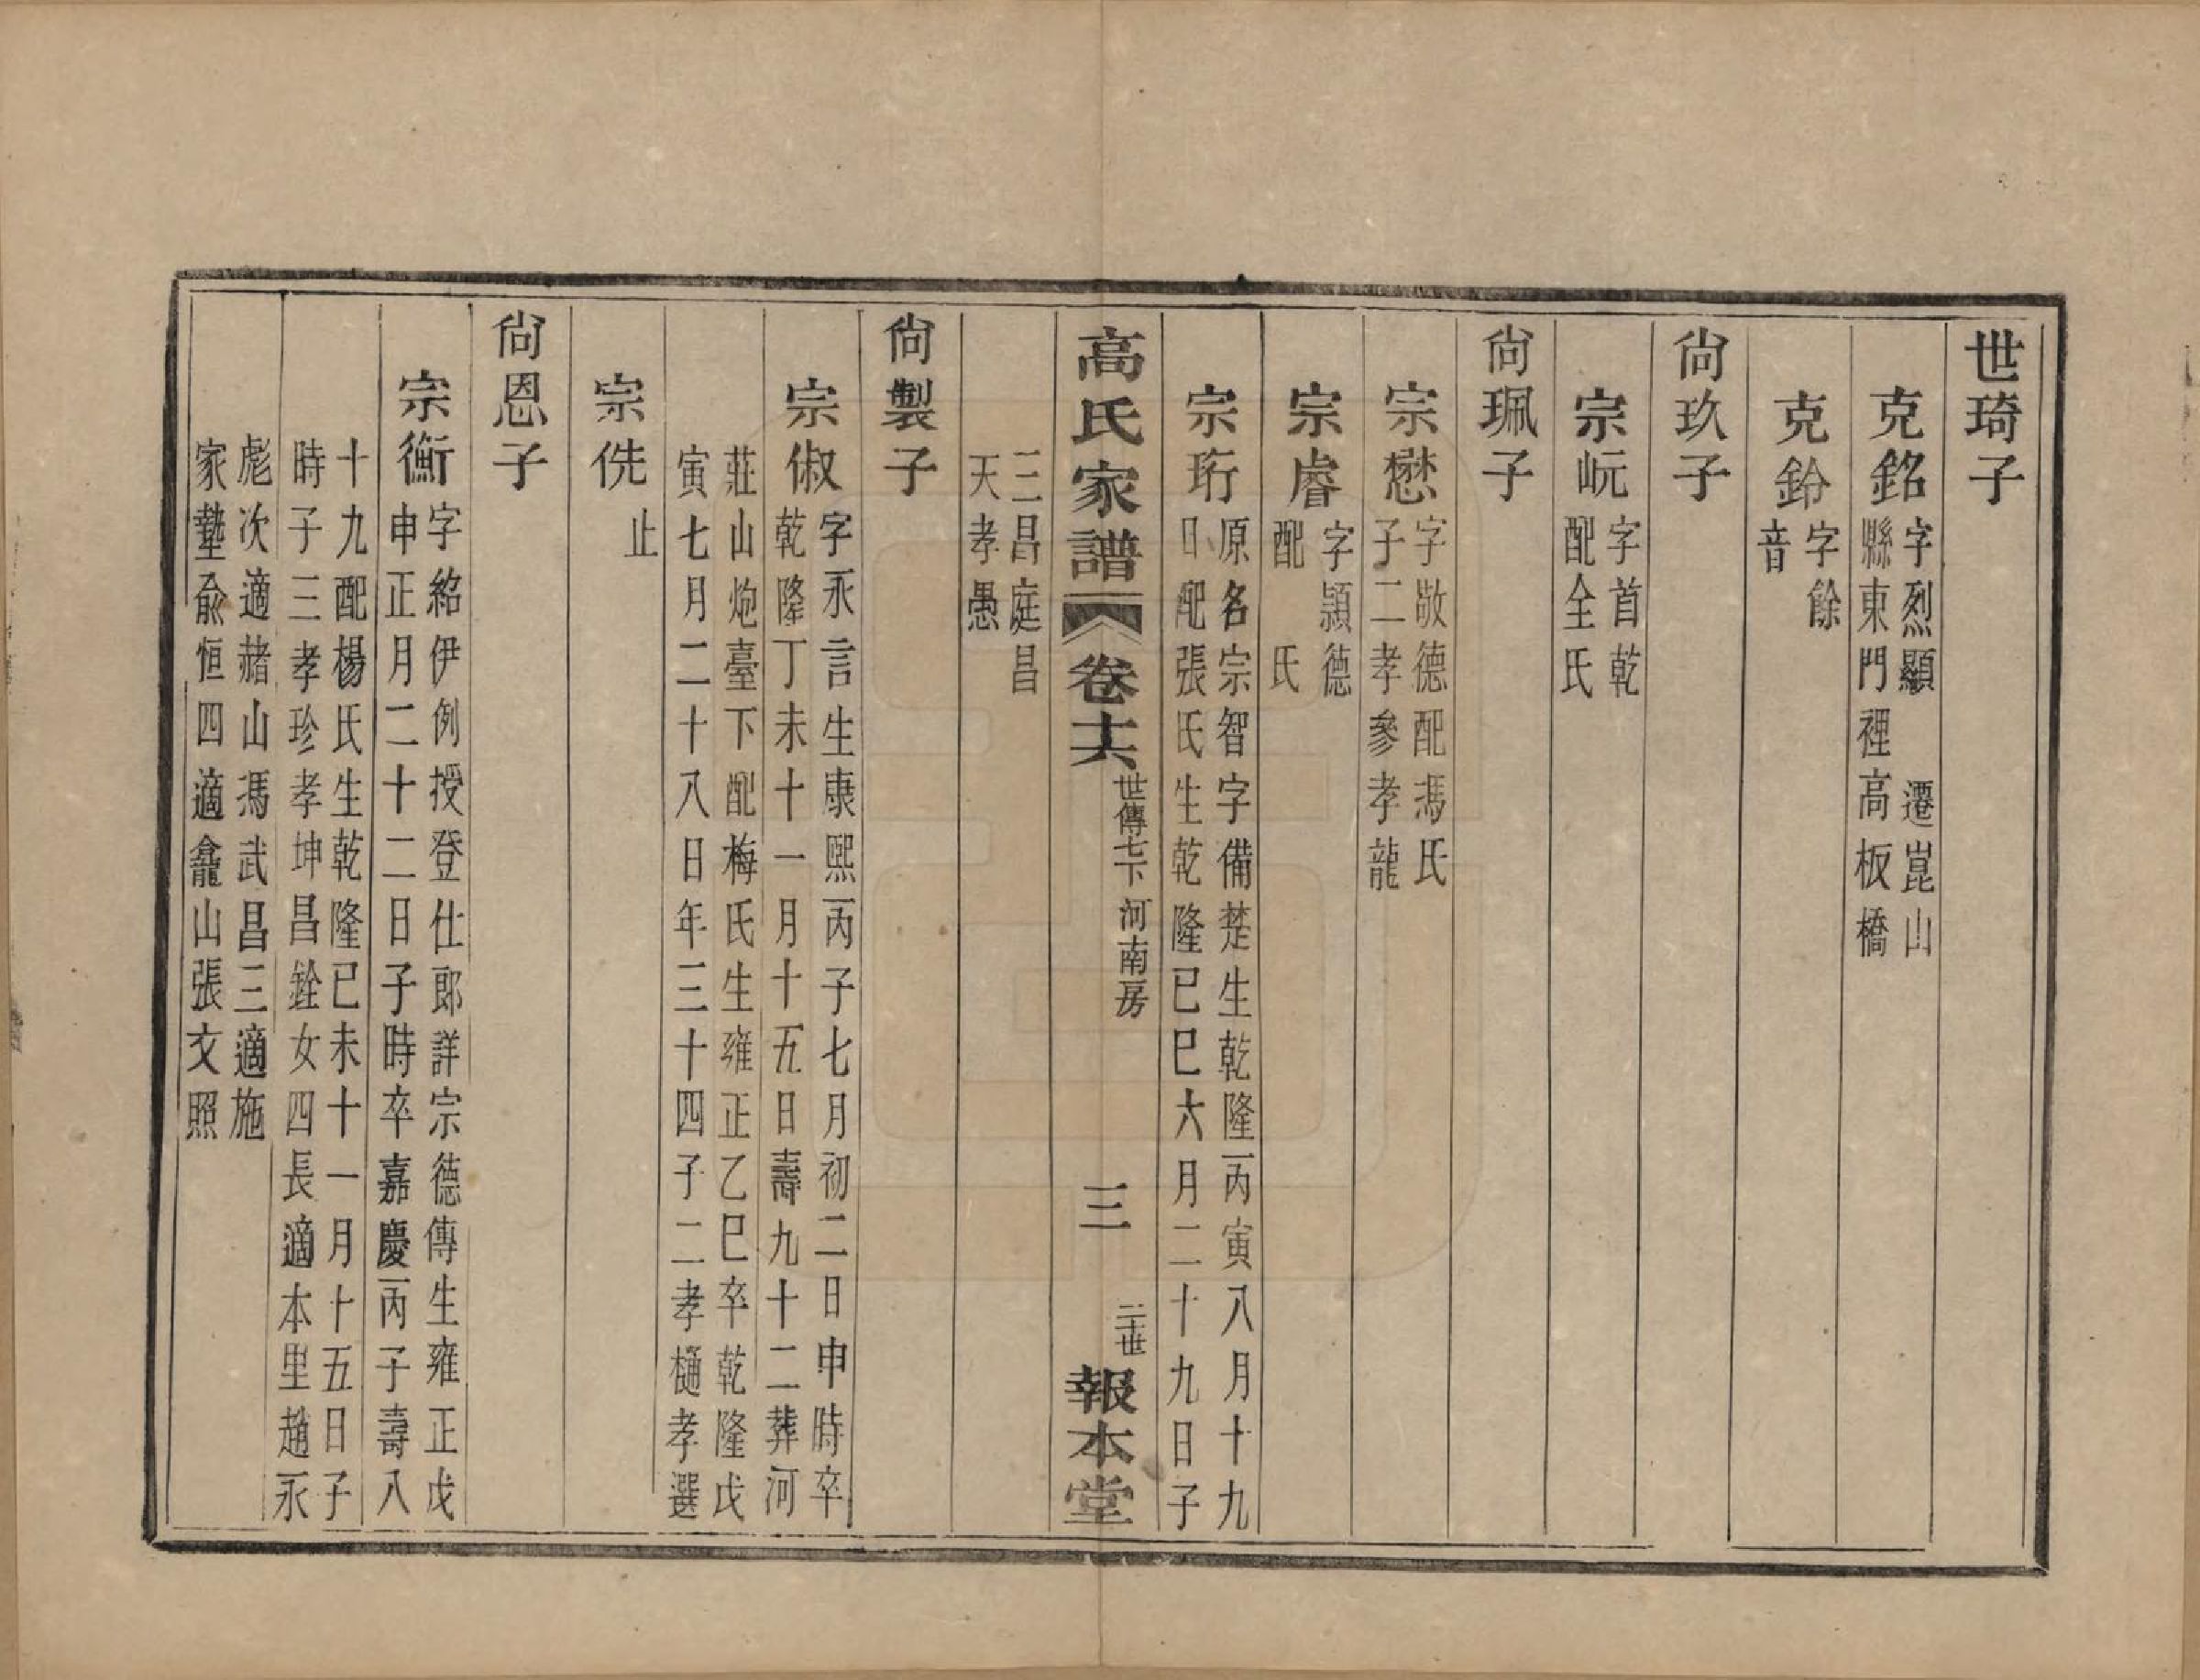 世琦子
克銘
字烈顯　遷崑山
縣東門裡高板橋
克鈴
字餘
音
尙玖子
宗岏
字首乾
配全氏
尙珮子
宗懋
字敬德配馮氏
子二孝參孝龍
宗睿
字顥德
配　氏
宗珩
原名宗智字備楚生乾隆丙寅八月十九
日配張氏生乾隆己巳六月二十九日子
三昌庭昌
天孝愚
高氏家譜
卷十六
世傳七下 河南房
三
二十世
報本堂
尙製子
宗俶
字永言生康熙丙子七月初二日申時卒
乾隆丁未十一月十五日壽九十二葬河
莊山炮臺下配梅氏生雍正乙巳卒乾隆戊
寅七月二十八日年三十四子二孝樋孝選
宗侁
止
尙恩子
宗衡
字紹伊例授登仕郎詳宗德傳生雍正戊
申正月二十二日子時卒嘉慶丙子壽八
十九配楊氏生乾隆己未十一月十五日子
時子三孝珍孝坤昌銓女四長適本里趙永
彪次適赭山馮武昌三適施
家墊兪恒四適龕山張文照